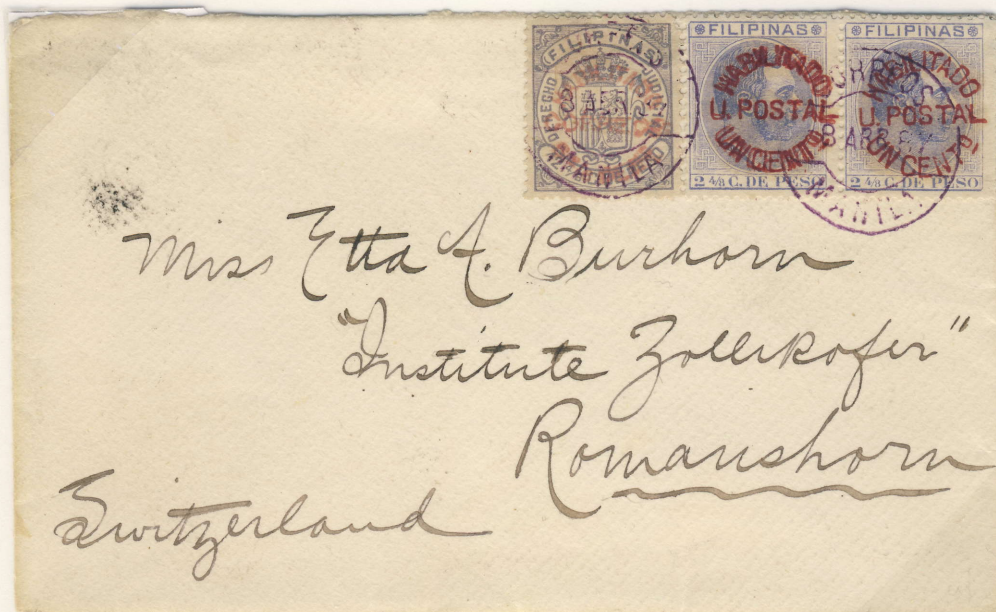 FILIPINAS
DERECHO JUDICIAL
FILIPINAS
HABILITADO
U. POSTAL
UN CENTO
2 4/8 C. DE PESO
FILIPINAS
HABILITADO
U. POSTAL
UN CENTO
2 4/8 C. DE PESO
MANILA
MANILA
Miss Etta A. Burhorn
"Institute Zollikofer"
Romanshorn
Switzerland